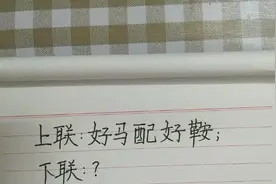 上联:好马配好鞍;
下联:?